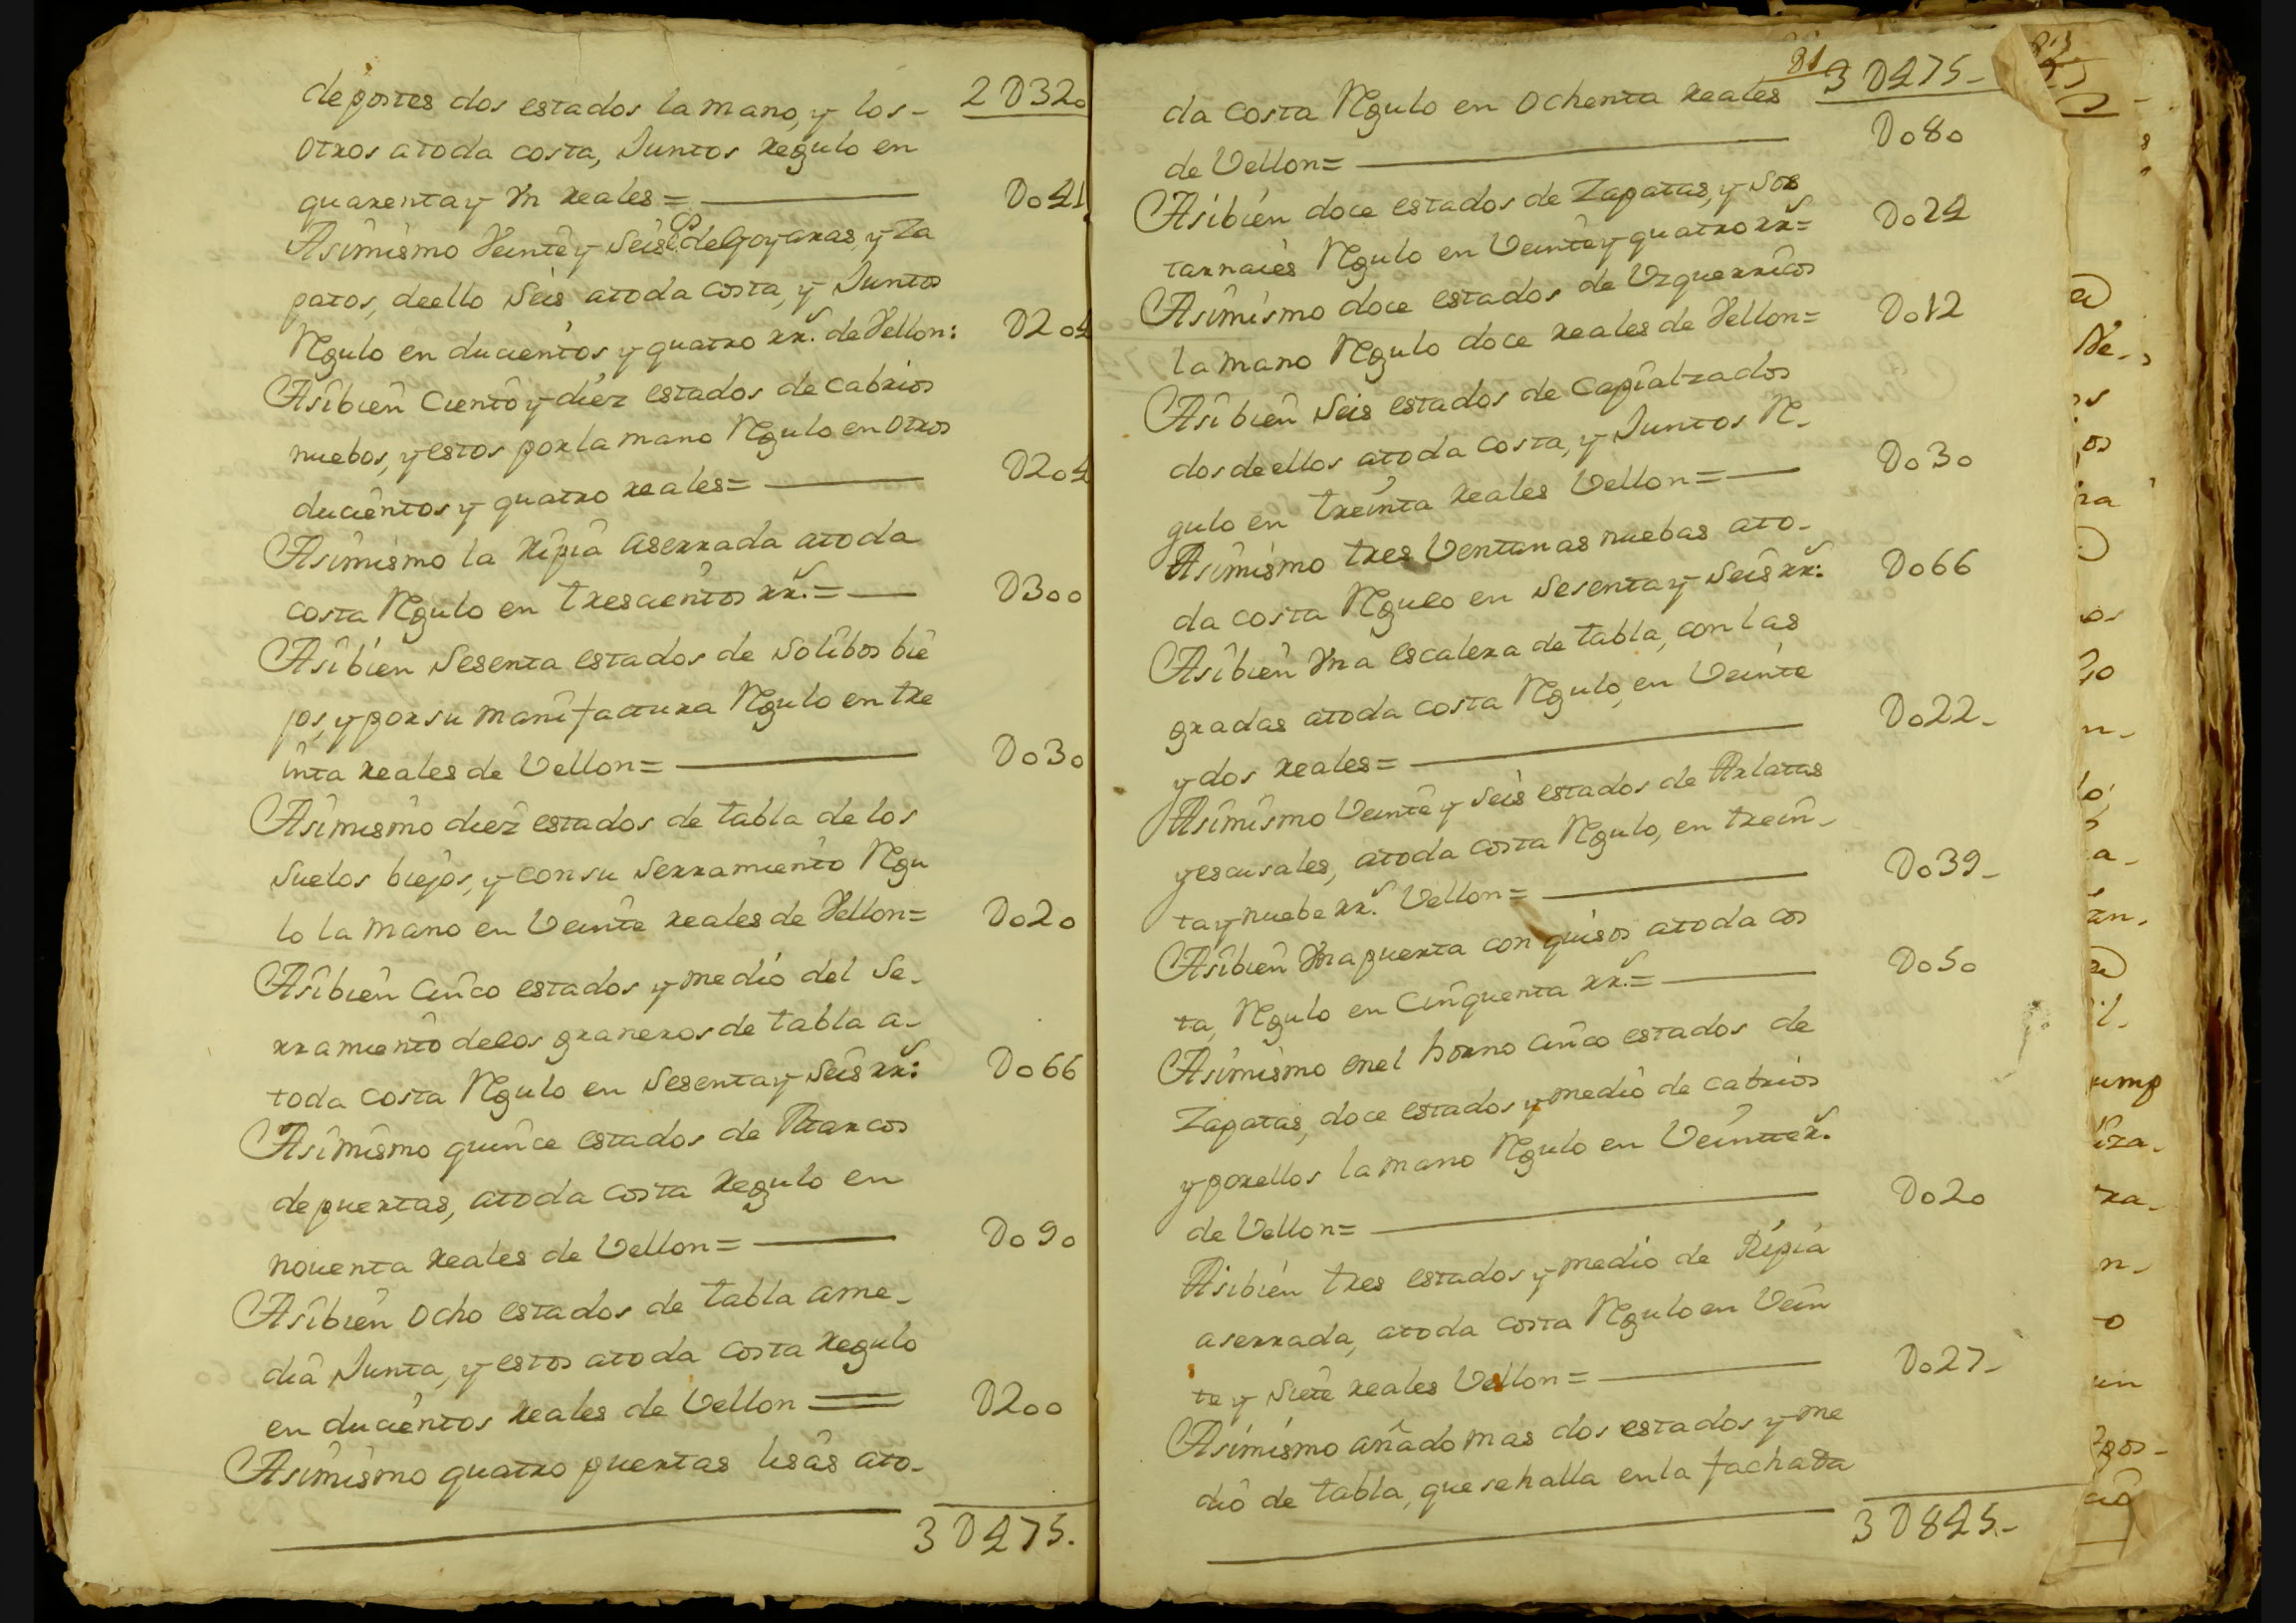 de postes dos estados la mano, y los- 2D320
Otros atoda costa, Juntos regulo en
quarenta y Vn reales = D041
Asimismo Veinte y Seis es de Goyaras, y Za
patos, deello Seis atoda costa, y Juntos
Rgulo en ducientos y quatro rrs. de Vellon: D204
Asibien Ciento y diez estados de Cabrios
nuebos, y estos por la mano Rgulo en Otros
ducientos y quatro reales = D204
Asimismo la Ripia aserrada atoda
costa Rgulo en trescientos rrs. = D300
Asibien Sesenta estados de Solibos bie
jos, y por su manifactura Rgulo en tre
inta reales de Vellon = D030
Asimismo diez estados de tabla de los
Suelos biejos, y con su Serramiento Rgu
lo la mano en Veinte reales de Vellon = D020
Asibien Cinco estados y medio del Se-
rramiento delos graneros de tabla a-
toda costa Rgulo en Sesenta y Seis rrs: D066
Asimismo quince estados de Marcos
de puertas, atoda costa Regulo en
nouenta Reales de Vellon = D090
Asibien Ocho estados de tabla ame-
dia Junta, y estos atoda costa Regulo
en ducientos reales de Vellon = D200
Asimismo quatro puertas lisas ato-
3D475.
81
3D475-
da costa Rgulo en Ochenta reales
de Vellon = D080
Asibien doce estados de Zapatas, y Sob
tarnaies Rgulo en Veinte y quatro rrs = D024
Asimismo doce estados de Vzquerricos
la mano Rgulo doce reales de Vellon = D012
Asibien Seis estados de Capialzados
dos deellos atoda costa, y Juntos R-
gulo en treinta reales Vellon = D030
Asimismo tres Ventanas nuebas ato-
da costa Rgulo en Sesenta y Seis rrs: D066
Asibien Vna escalera de tabla, con las
gradas atoda costa Rgulo, en Veinte
y dos reales = D022-
Asimismo Veinte y Seis estados de Arlatas
y escusales, atoda costa Rgulo, en trein-
ta y nuebe rrs. Vellon = D039-
Asibien Vna puerta con quisos atoda cos
ta, Rgulo en Cinquenta rrs. = D050
Asimismo enel horno Cinco estados de
Zapatas, doce estados y medio de cabrios
y porellos la mano Rgulo en Veinte rs.
de Vellon = D020
Asibien tres estados y medio de Ripia
aserrada, atoda costa Rgulo en Vein
te y Siete reales Vellon = D027-
Asimismo añado mas dos estados y me
dio de tabla, que se halla en la fachada
3D845.-